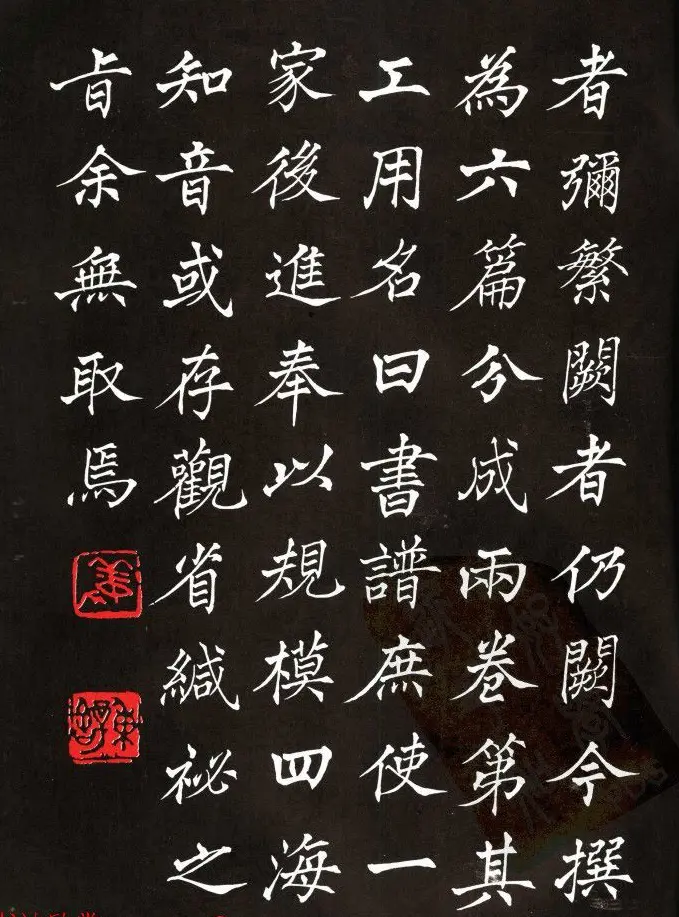 者彌繁闕者仍闕今撰
為六篇分成兩卷第其
工用名曰書譜庶使一
家後進奉以規模四海
知音或存觀省緘祕之
旨余無取焉